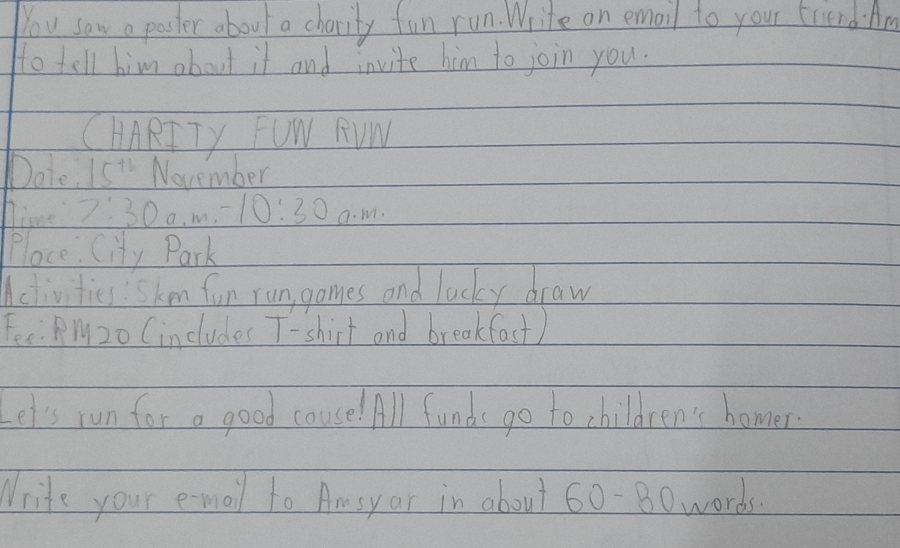 You saw a poster about a charity fun run. Write an email to your friend. Am
to tell him about it and invite him to join you.
CHARITY FUN RUN
Date: 15th November
Time: 7:30 a.m. - 10:30 a.m.
Place: City Park
Activities: 5km fun run, games and lucky draw
Fee: RM20 (includes T-shirt and breakfast)
Let's run for a good cause! All funds go to children's homes.
Write your e-mail to Amsyar in about 60-80 words.